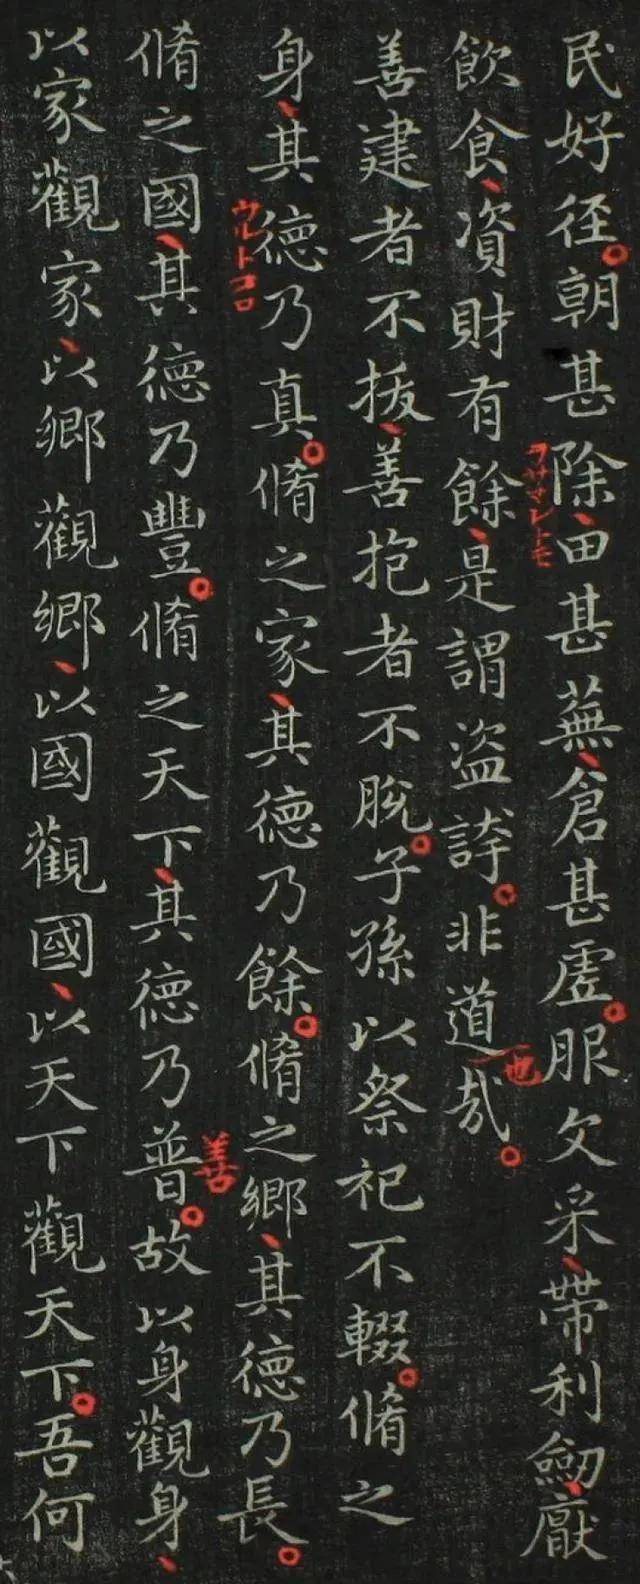 民好径。朝甚除、田甚蕪、倉甚虗。服文采、帶利劒、厭
ヲサマレトモ
飲食、資財有餘、是謂盗誇。非道哉。
也
善建者不拔、善抱者不脫。子孫以祭祀不輟。脩之
身、其德乃真。脩之家、其德乃餘。脩之鄉、其德乃長。
ウルトコロ
脩之國、其德乃豐。脩之天下、其德乃普。故以身觀身、
善
以家觀家、以鄉觀鄉、以國觀國、以天下觀天下。吾何